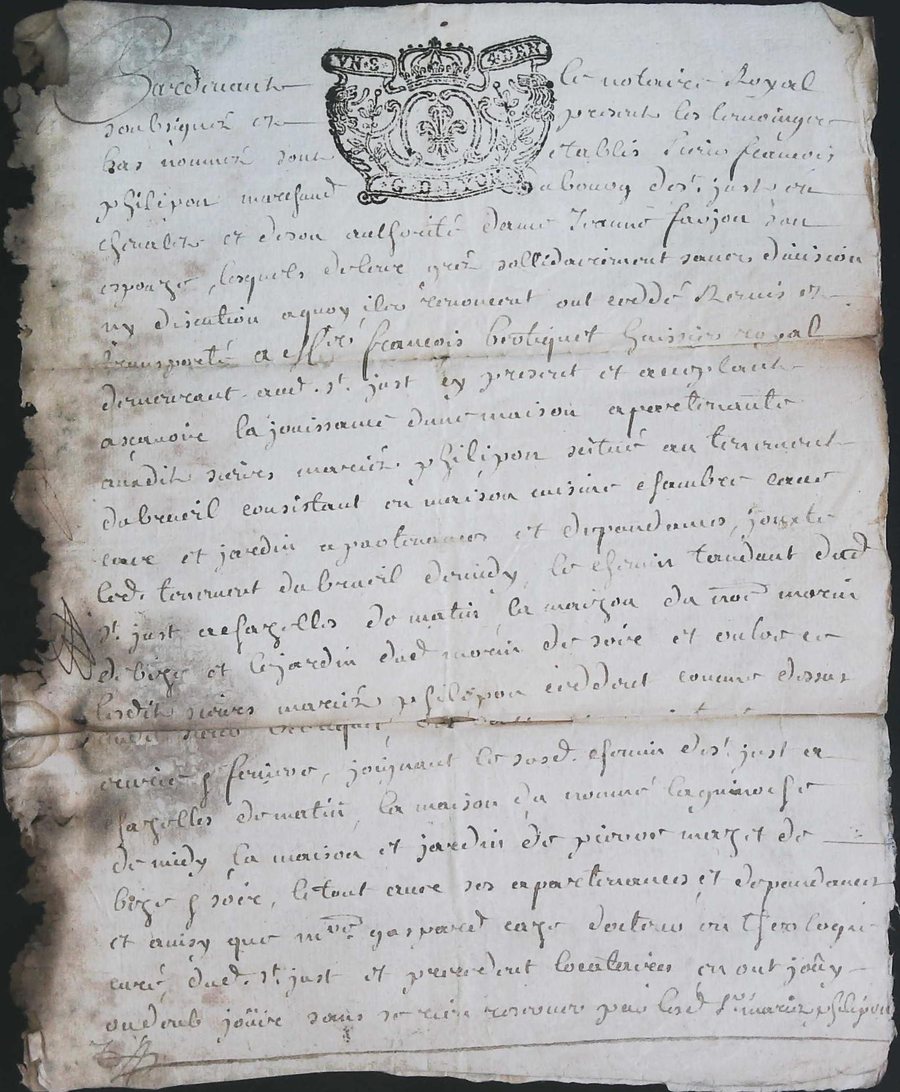 VN.S 4DEN
G.D.LYON
Pardevant le notaire Royal
soubsigné et present les temoings
bas nommés sont etablis Sieur françois
philipon marchand du bourg de st. just en
chevalet et de son authorité dame Jeanne faujon son
espouze, lesquels de leur gré sollidairement sans division
ny discution a quoy ils renoncent ont ceddé Remis et
transporté a françois brotiquet huissier royal
demeurant aud. st. just cy present et acceptant
asçavoir la jouissance dune maison apartenante
audit sieurs mariés philipon scitué au tenement
du brueil consistant en maison cuisine chambre
cave et jardin apartenances et dependances, jouxte
led. tenement du brueil de midy, le chemin tandant dud
st. just a chazelles de matin, la maizon du nomé morin
de bize et le jardin dud morin de soir et
lesdit sieurs mariés philipon ceddent comme dessus
audit sieur
curie & feniere, joignant le susd. chemin de st. just a
chazelles de matin, la maison du nommé
de midy, la maison et jardin de pierre mazet de
bize & soir, le tout avec ses apartenances et dependances
et ainsy que mre gaspard caze docteur en theologie
curé dud. st. just et precedent locataires en ont jouy
ou deub jouir sans se rien reserver par lesd srs mariés philipon